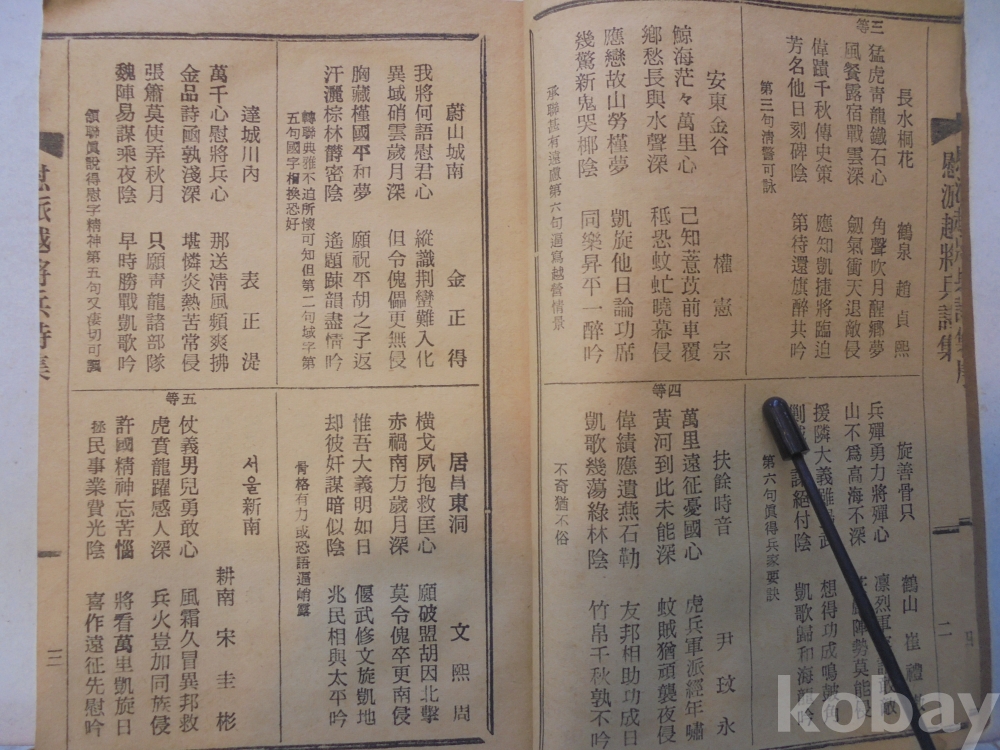 三等
長水桐花 鶴泉 趙貞熙
猛虎靑龍鐵石心 角聲吹月醒鄕夢
風餐露宿戰雲深 劒氣衝天退敵侵
偉蹟千秋傳史策 應知凱捷將臨迫
芳名他日刻碑陰 第待還旗醉共吟
第三句淸警可詠
安東金谷 權憲宗
鯨海茫々萬里心 己知薏苡前車覆
鄕愁長與水聲深 秪恐蚊虻曉幕侵
應戀故山勞槿夢 凱旋他日論功席
幾驚新鬼哭椰陰 同樂昇平一醉吟
承聯甚有遠慮第六句逼寫越營情景
旋善骨只 鶴山 崔禮
兵殫勇力將殫心
山不爲高海不深 陣勢莫能侵
援隣大義 想得功成鳴
絕付陰 凱歌歸和海 吟
第六句眞得兵家要訣
四等
扶餘時音 尹玫永
萬里遠征憂國心 虎兵軍派經年嘯
黃河到此未能深 蚊賊猶頑襲夜侵
偉績應遺燕石勒 友邦相助功成日
凱歌幾蕩綠林陰 竹帛千秋孰不吟
不奇猶不俗
二
蔚山城南 金正得
我將何語慰君心 縱識荆蠻難入化
異域硝雲歲月深 但令傀儡更無侵
胸藏槿國平和夢 願祝平胡之子返
汗灑棕林欝密陰 遙題踈韻盡情吟
轉聯典雅不迫所懷可知但第二句域字第
五句國字相換恐好
達城川內 表正湜
萬千心慰將兵心 那送淸風頻爽拂
金品詩凾孰淺深 堪憐炎熱苦常侵
張簫莫使弄秋月 只願靑龍諸部隊
魏陣易謀乘夜陰 早時勝戰凱歌吟
頷聯眞說得慰字精神第五句又凄切可
居昌東洞 文熙周
橫戈夙抱救匡心 願破盟胡因北擊
赤禍南方歲月深 莫令傀卒更南侵
惟吾大義明如日 偃武修文旋凱地
却彼奸謀暗似陰 兆民相與太平吟
骨格有力或恐語逼峭露
五等
서울新南 耕南 宋圭彬
仗義男兒勇敢心 風霜久冒異邦救
虎賁龍躍感人深 兵火豈加同族侵
許國精神忘苦惱 將看萬里凱旋日
拯民事業費光陰 喜作遠征先慰吟
三
慰派越將兵詩集
kobay